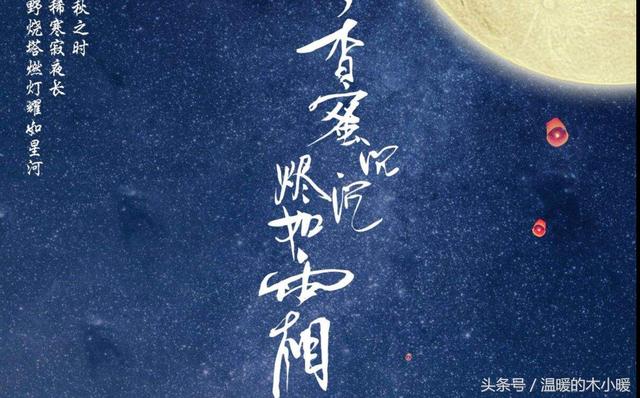 秋之时
稀寒寂夜长
野烧塔燃灯耀如星河
香蜜沉沉
烬如霜
头条号 / 温暖的木小暖